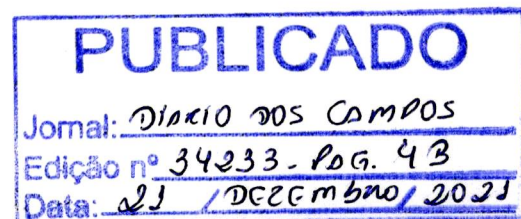 PUBLICADO
Jornal: DIARIO DOS CAMPOS
Edição nº 34233 - PAG. 4B
Data: 21 / DEZEMBRO / 2021